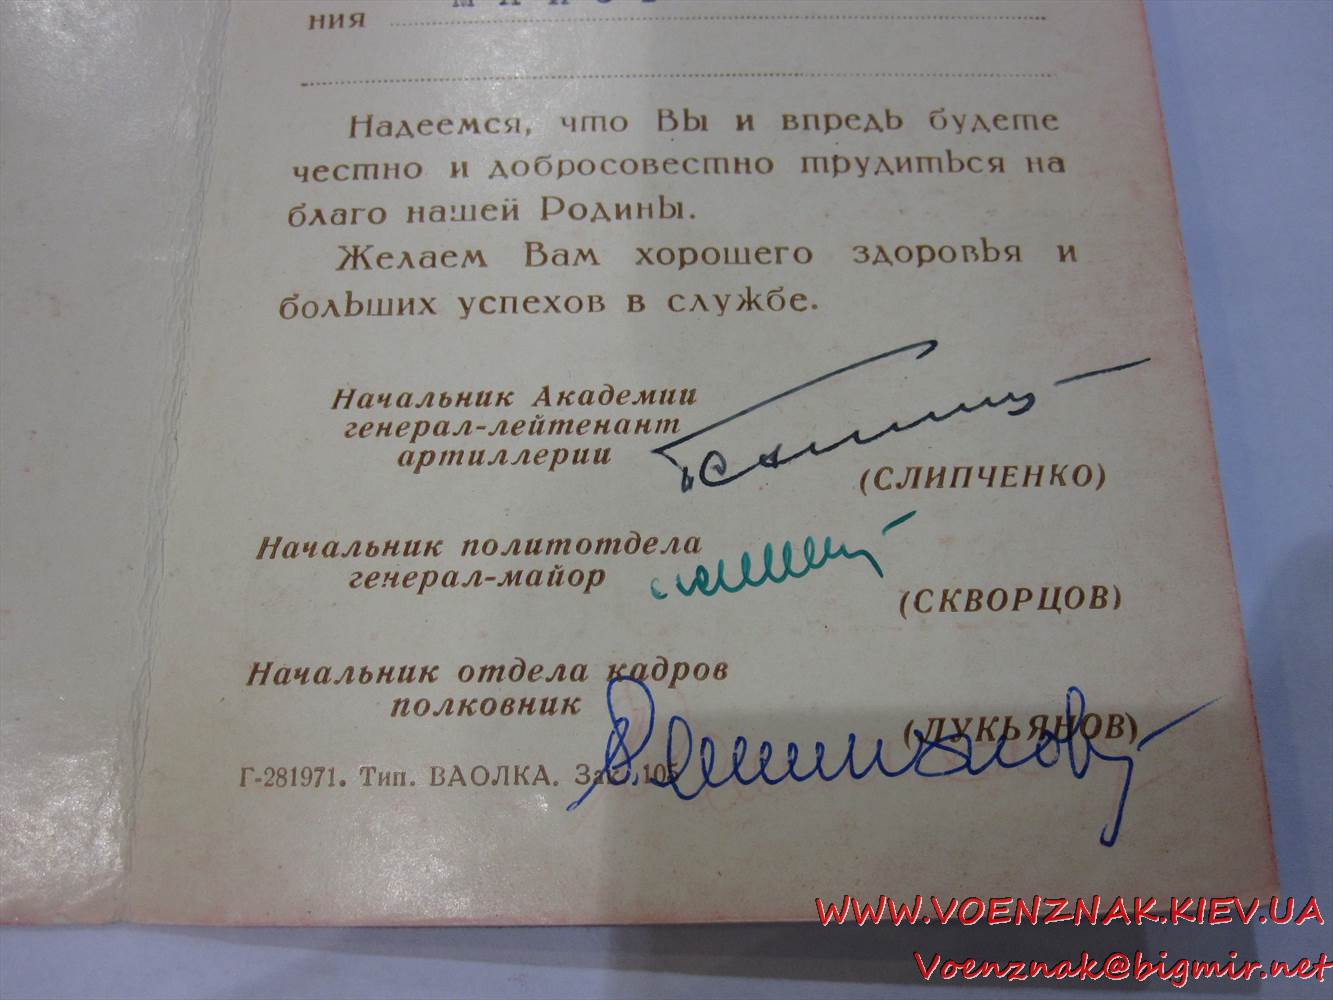 ния
Надеемся, что Вы и впредь будете
честно и добросовестно трудиться на
благо нашей Родины.
Желаем Вам хорошего здоровья и
больших успехов в службе.
Начальник Академии
генерал-лейтенант
артиллерии
(СЛИПЧЕНКО)
Начальник политотдела
генерал-майор
(СКВОРЦОВ)
Начальник отдела кадров
полковник
(ЛУКЬЯНОВ)
Г-281971. Тип. ВАОЛКА. Зак. 105
WWW.VOENZNAK.KIEV.UA
Voenznak@bigmir.net